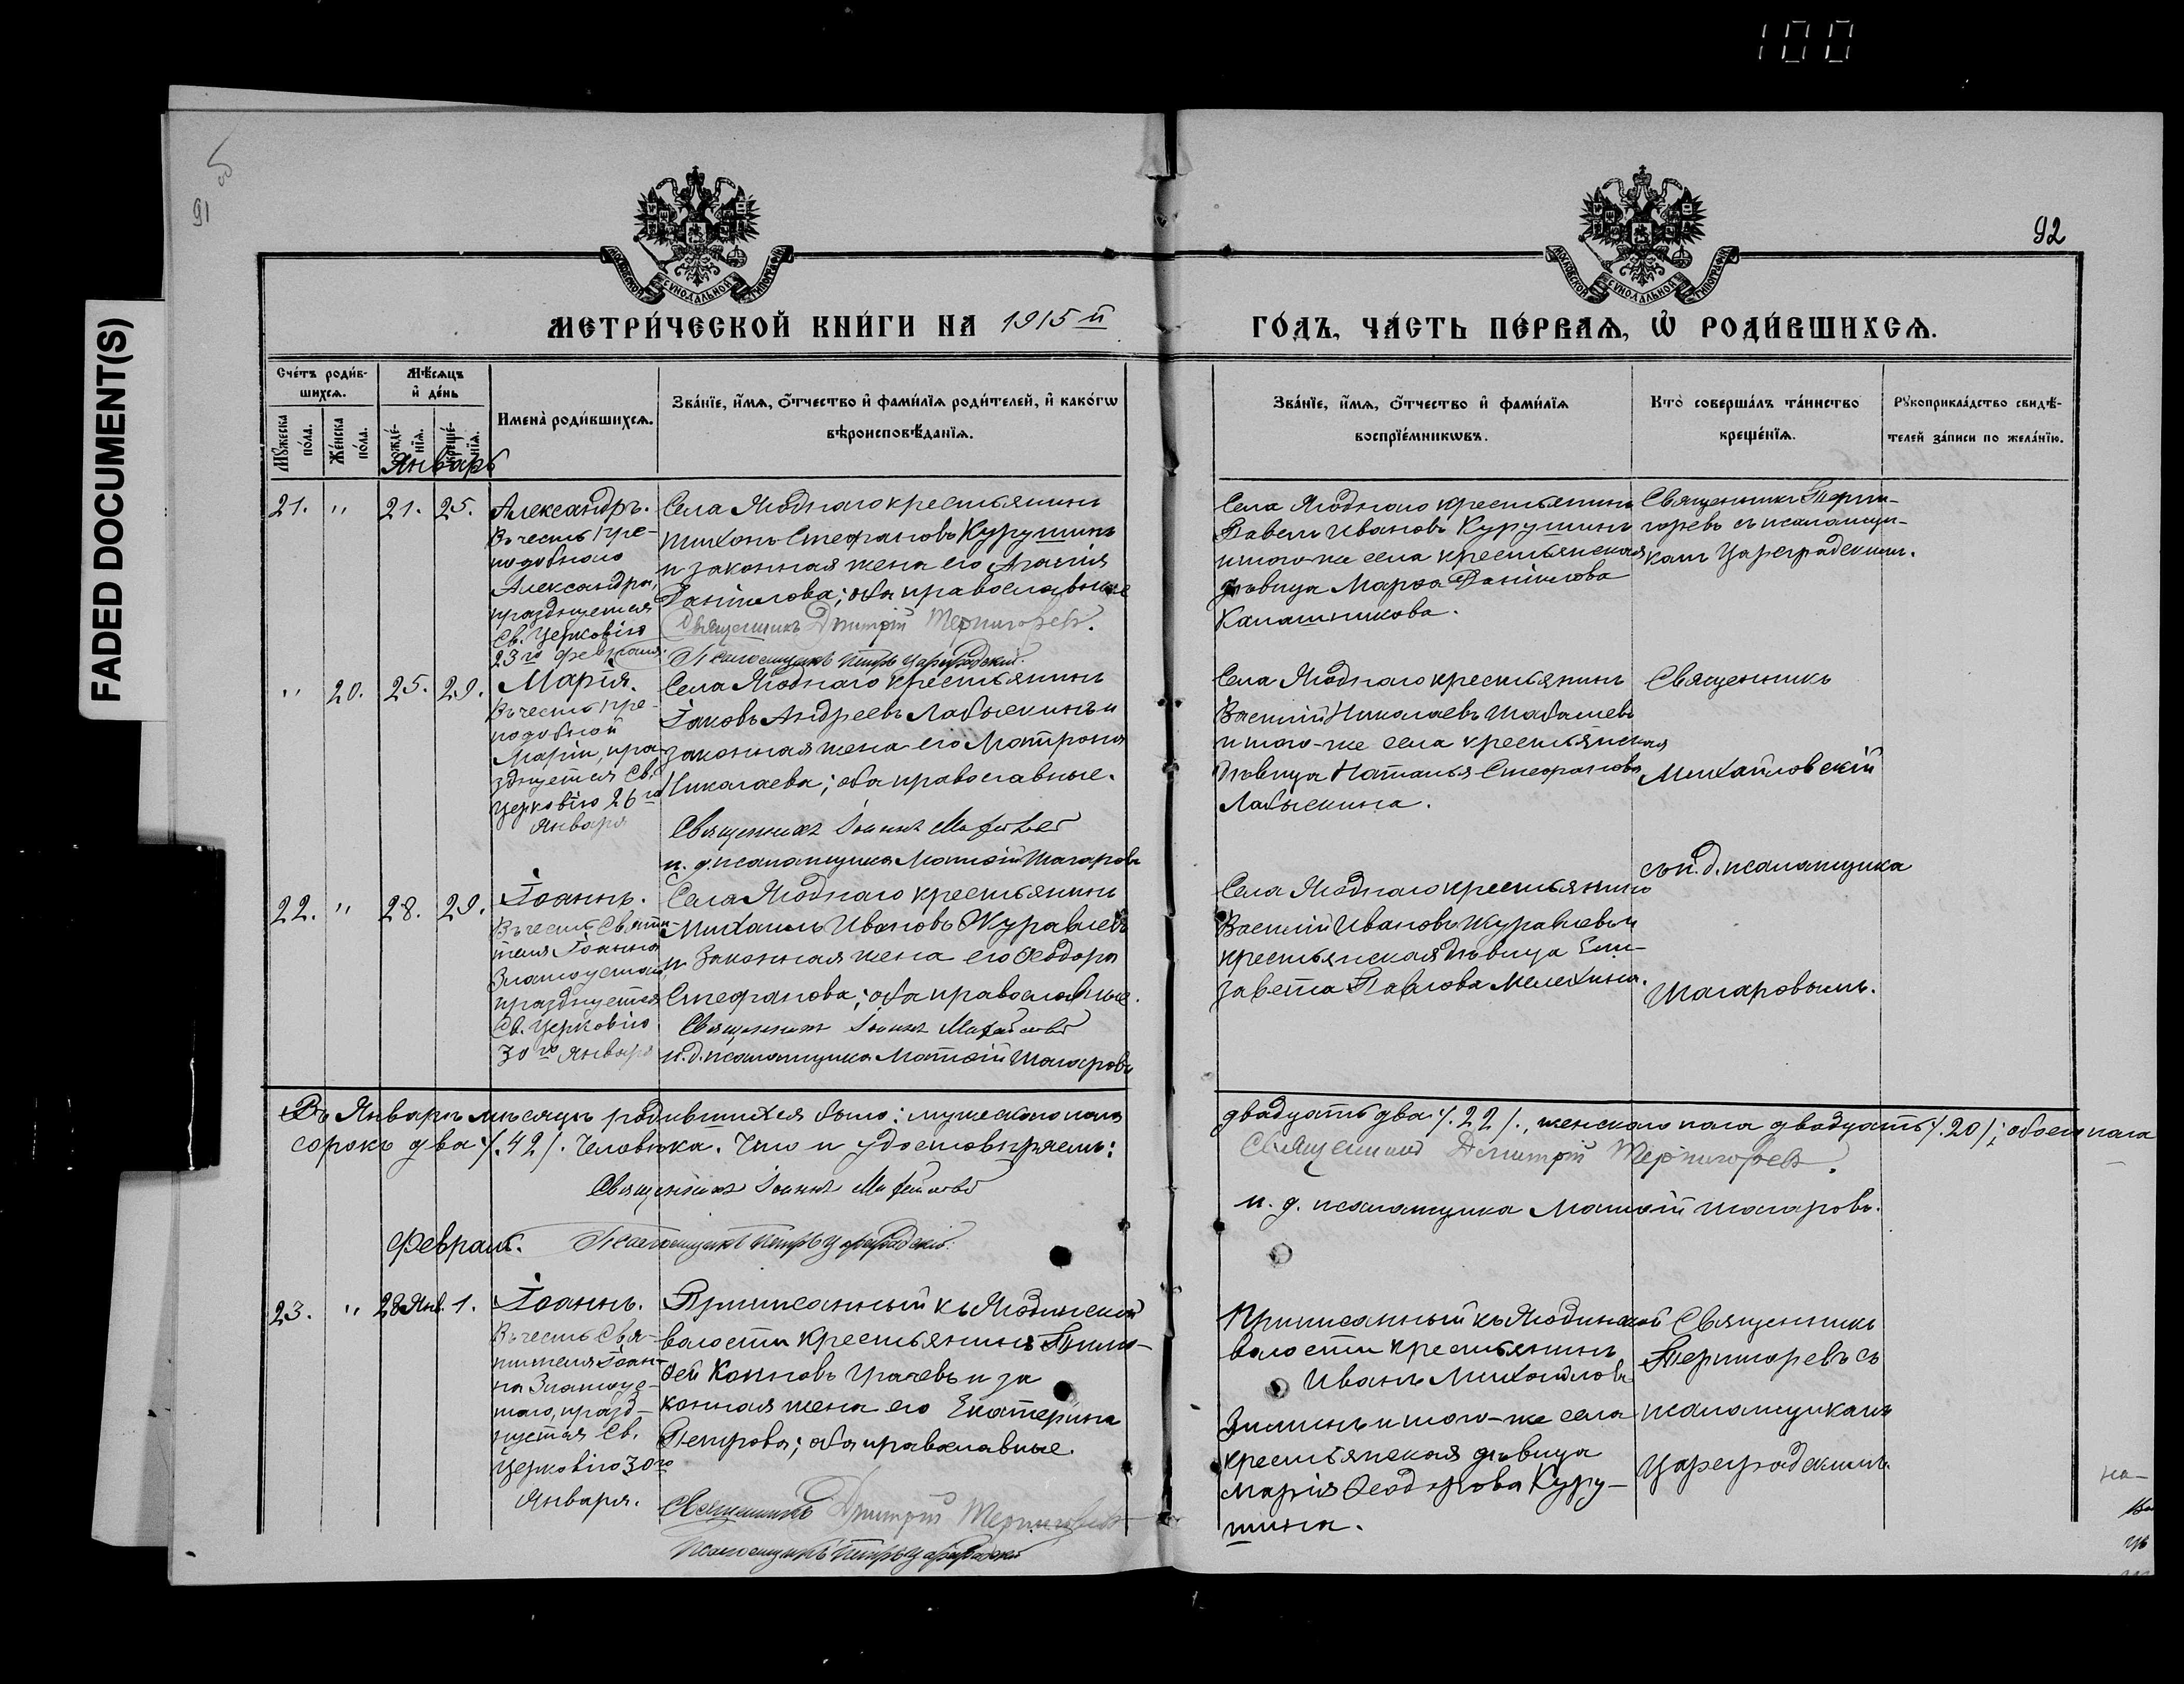 100
FADED DOCUMENT(S)
91
92
МОСКОВСКОЙ СѴНОДАЛЬНОЙ ТИПОГРАФІИ
МОСКОВСКОЙ СѴНОДАЛЬНОЙ ТИПОГРАФІИ
МЕТРИ́ЧЕСКОЙ КНИ́ГИ НА 1915 й
ГО́ДЪ, ЧА́СТЬ ПЕ́РВАѦ, Ѡ҆ РОДИ́ВШИХСѦ.
Сче́тъ роди́в-
шихсѧ.
Мꙋ́жеска по́ла.
Же́нска по́ла.
Мѣ́сѧцъ
и҆ де́нь
рожде́-нїѧ.
креще́-нїѧ.
Имена̀ роди́вшихсѧ.
Зва́нїе, и҆́мѧ, ѻ҆́тчество и҆ фами́лїѧ роди́телей, и҆ како́гѡ
вѣроисповѣ́данїѧ.
Зва́нїе, и҆́мѧ, ѻ҆́тчество и҆ фами́лїѧ
воспрїе́мникѡвъ.
Кто̀ соверша́лъ та́инство
креще́нїѧ.
Рꙋкоприкла́дство свидѣ́-
телей за́писи по жела́нїю.
Январь
21. " 21. 25.
Александръ.
Въ честь пре-
подобнаго
Александра,
празднуется
Св. Церковію
23го февраля.
Села Ягоднаго крестьянинъ
Тихонъ Стефановъ Курушинъ
и законная жена его Агаѳія
Даніилова; оба православные
Священникъ Дмитрій Терпигоревъ.
Псаломщикъ Петръ Цареградскій.
Села Ягоднаго крестьянинъ
Павелъ Ивановъ Курушинъ
и того-же села крестьянская
дѣвица Марѳа Даніилова
Калашникова.
Священникъ Терпи-
горевъ съ псаломщи-
комъ Цареградскимъ.
" 20. 25. 29.
Марія.
Въ честь пре-
подобной
Маріи, пра-
зднуется Св.
Церковію 26го
Января
Села Ягоднаго крестьянинъ
Іаковъ Андреевъ Лабыскинъ и
законная жена его Матрона
Николаева; оба православные.
Священникъ Іоаннъ
и. д. псаломщика Матѳій Шагаровъ
Села Ягоднаго крестьянинъ
Василій Николаевъ Шабашевъ
и того-же села крестьянская
дѣвица Наталья Стефанова
Лабыскина.
Священникъ
Михайловскій
съ и. д. псаломщика
Шагаровымъ.
22. " 28. 29.
Іоаннъ.
Въ честь Святи-
теля Іоанна
Златоустаго
празднуется
Св. Церковію
30го Января
Села Ягоднаго крестьянинъ
Михаилъ Ивановъ Журавлевъ
и законная жена его Ѳеодора
Стефанова; оба православные.
Священникъ Іоаннъ
и. д. псаломщика Матѳій Шагаровъ
Села Ягоднаго крестьянинъ
Василій Ивановъ Журавлевъ и
крестьянская дѣвица Ели-
завета Павлова Мелехина.
Въ Январѣ мѣсяцѣ родившихся было: мужескаго пола двадцать два /.22/., женскаго пола двадцать /.20/; обоего пола
сорокъ два /.42/. человѣка. Что и удостовѣряемъ:
Священникъ Дмитрій Терпигоревъ.
Священникъ Іоаннъ
и. д. псаломщика Матѳій Шагаровъ.
Псаломщикъ Петръ Цареградскій.
Февраль.
23. " 28 Янв. 1.
Іоаннъ.
Въ честь Свя-
тителя Іоан-
на Златоус-
таго, празд-
нуется Св.
Церковію 30го
Января.
Приписанный къ Ягодинской
волости крестьянинъ Тимо-
ѳей Кононовъ Грачевъ и за
конная жена его Екатерина
Петрова; оба православные.
Священникъ Дмитрій Терпигоревъ
Псаломщикъ Петръ Цареградскій
Приписанный къ Ягодинской
волости крестьянинъ
Иванъ Михайловъ
Зиминъ и того-же села
крестьянская дѣвица
Марія Ѳеодорова Куру-
шина.
Священникъ
Терпигоревъ съ
псаломщикомъ
Цареградскимъ.
на-